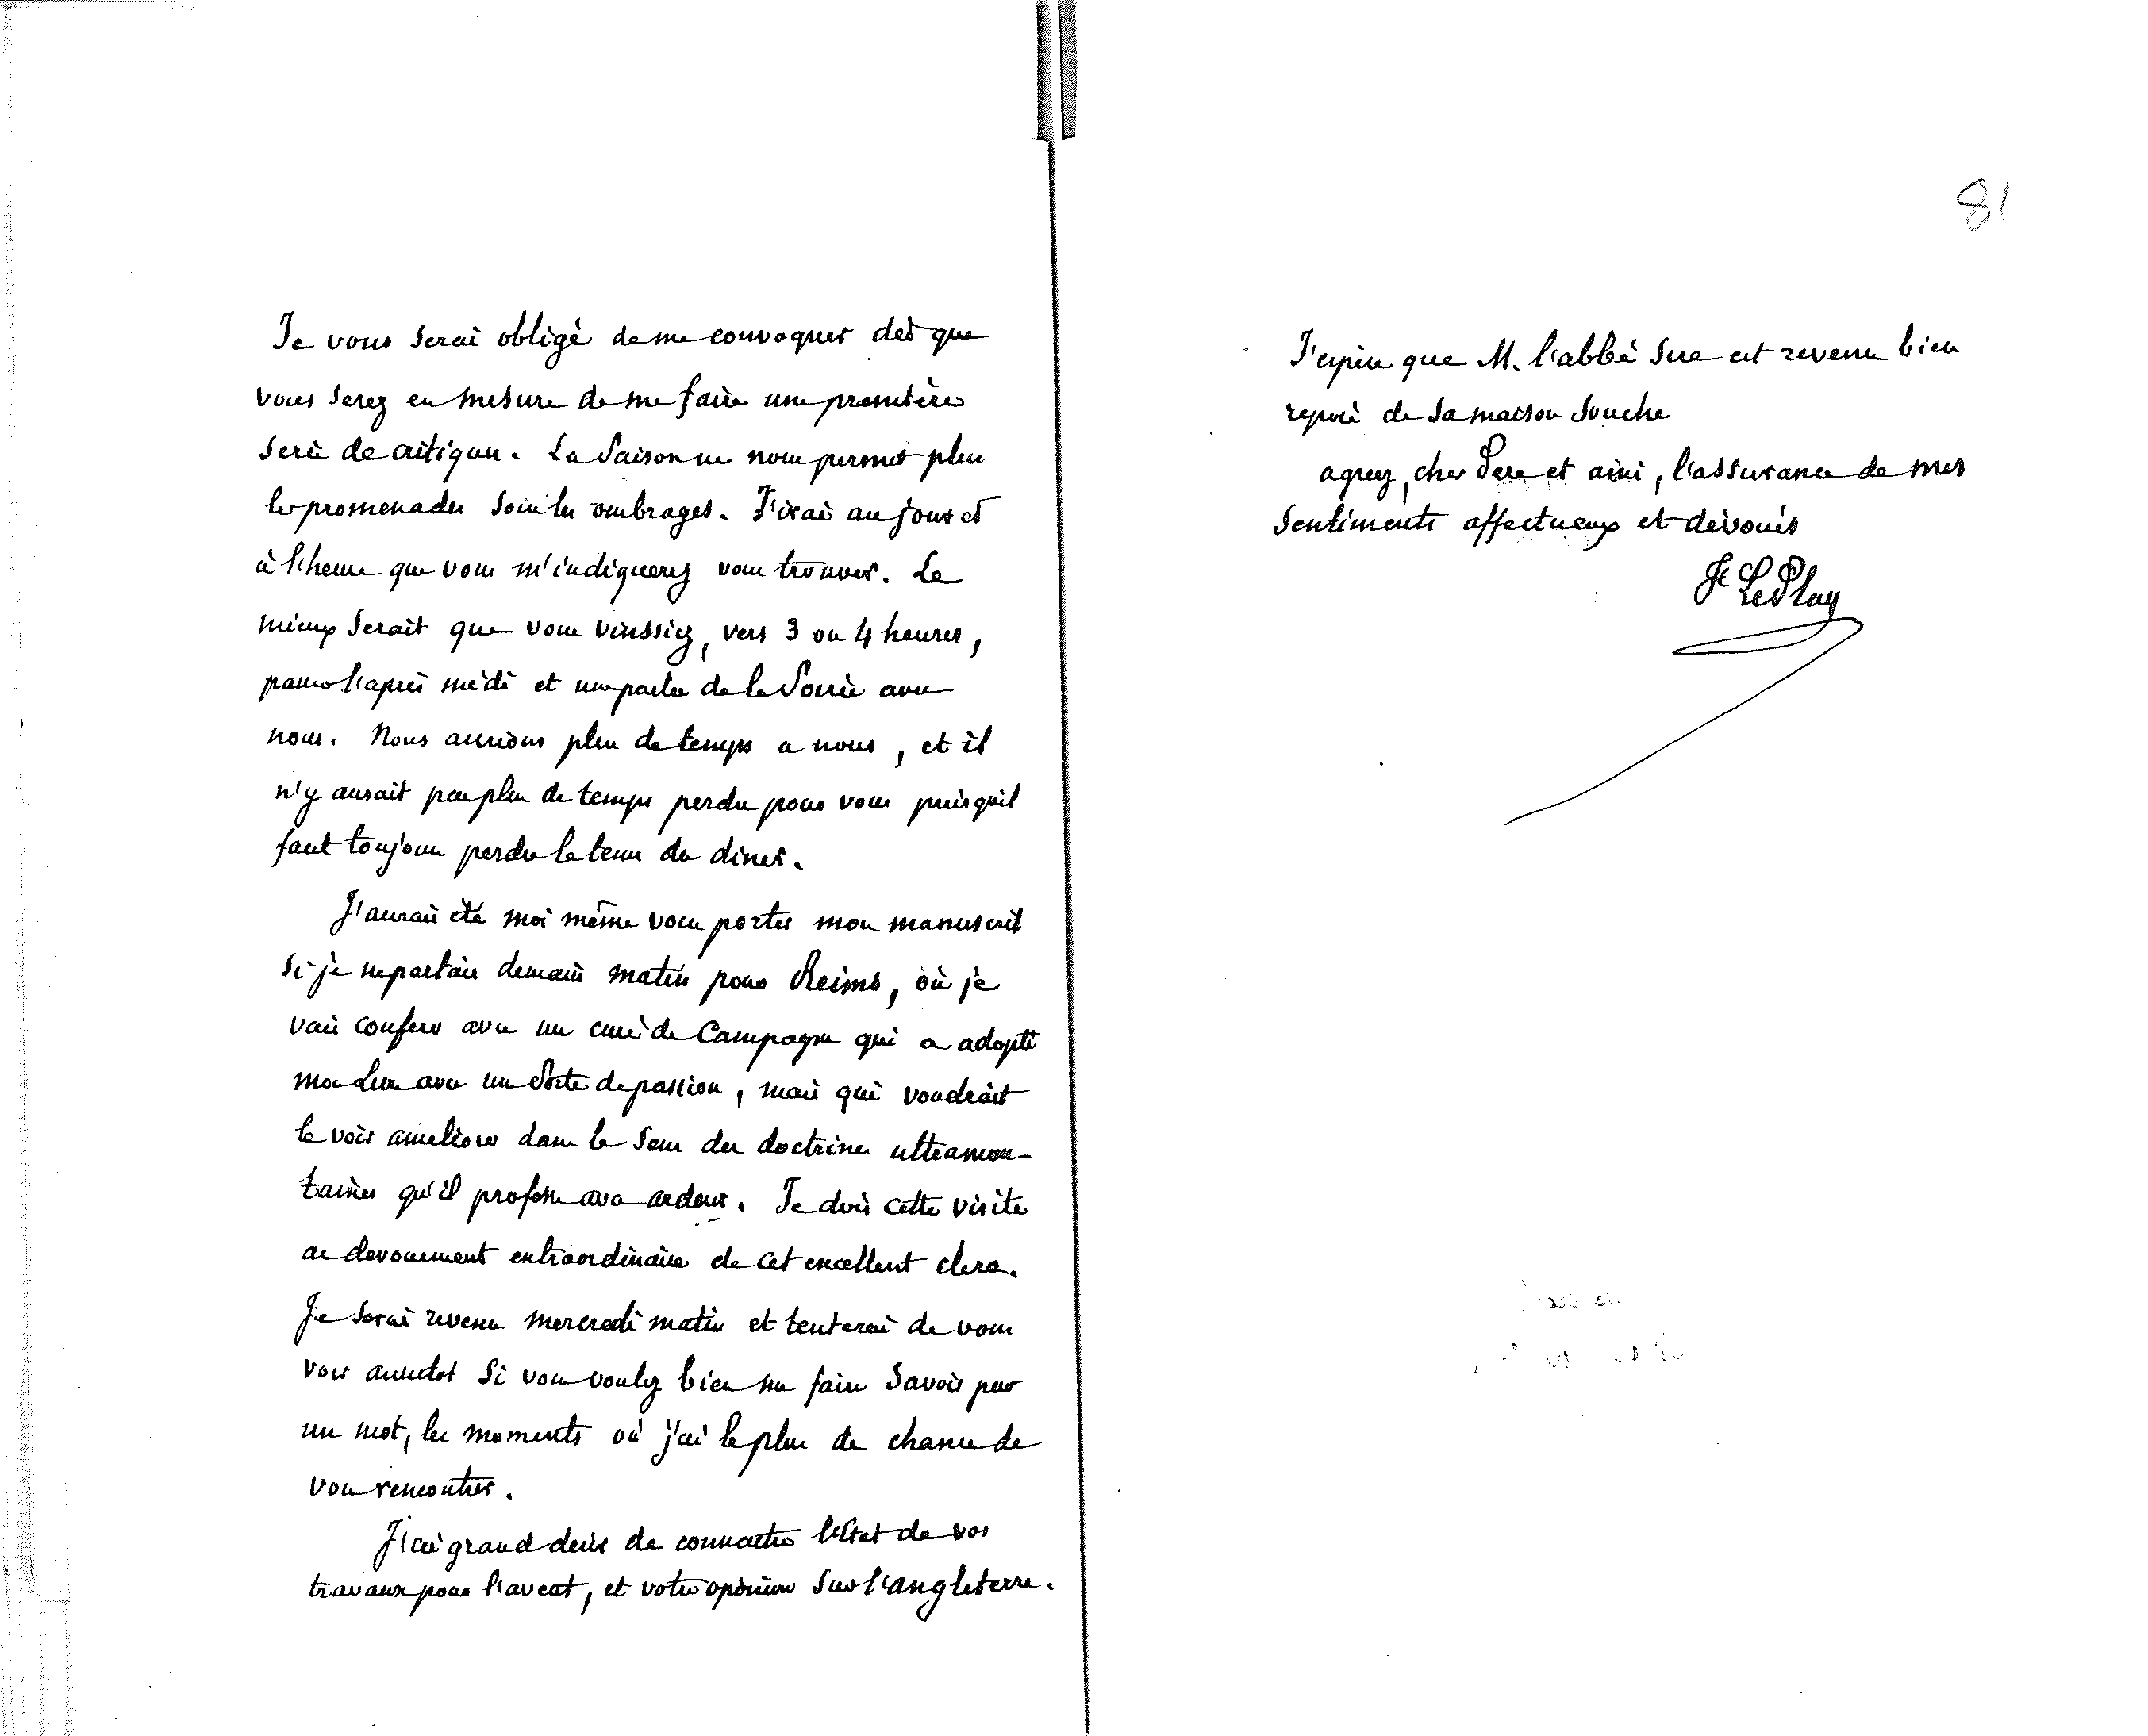 Je vous serai obligé de me convoquer dès que
vous serez en mesure de me faire une première
série de critiques. La saison ne nous permet plus
les promenades sous les ombrages. J'irai au jour et
à l'heure que vous m'indiquerez vous trouver. Le
mieux serait que vous vinssiez, vers 3 ou 4 heures,
passer l'après midi et une partie de la soirée avec
nous. Nous aurions plus de temps a nous, et il
n'y aurait pas plus de temps perdu pour vous puisqu'il
faut toujours perdre le tems du diner.
J'aurais été moi même vous porter mon manuscrit
si je ne partais demain matin pour Reims, où je
vais conférer avec un curé de Campagne qui a adopté
mon livre avec une sorte de passion, mais qui voudrait
le voir améliorer dans le sens des doctrines ultramon-
taines qu'il professe avec ardeur. Je dois cette visite
au devouement extraordinaire de cet excellent clerc.
Je serai revenu mercredi matin et tenterai de vous
voir aussitot si vous voulez bien me faire savoir par
un mot, les moments où j'ai le plus de chance de
vous rencontrer.
J'ai grand désir de connaitre l'état de vos
travaux pour l'avent, et votre opinion sur l'angleterre.
81
J'espère que M. l'abbé Sere est revenu bien
reposé de sa maison souche
agreez, cher Pere et ami, l'assurance de mes
sentiments affectueux et dévoués
F Le Play